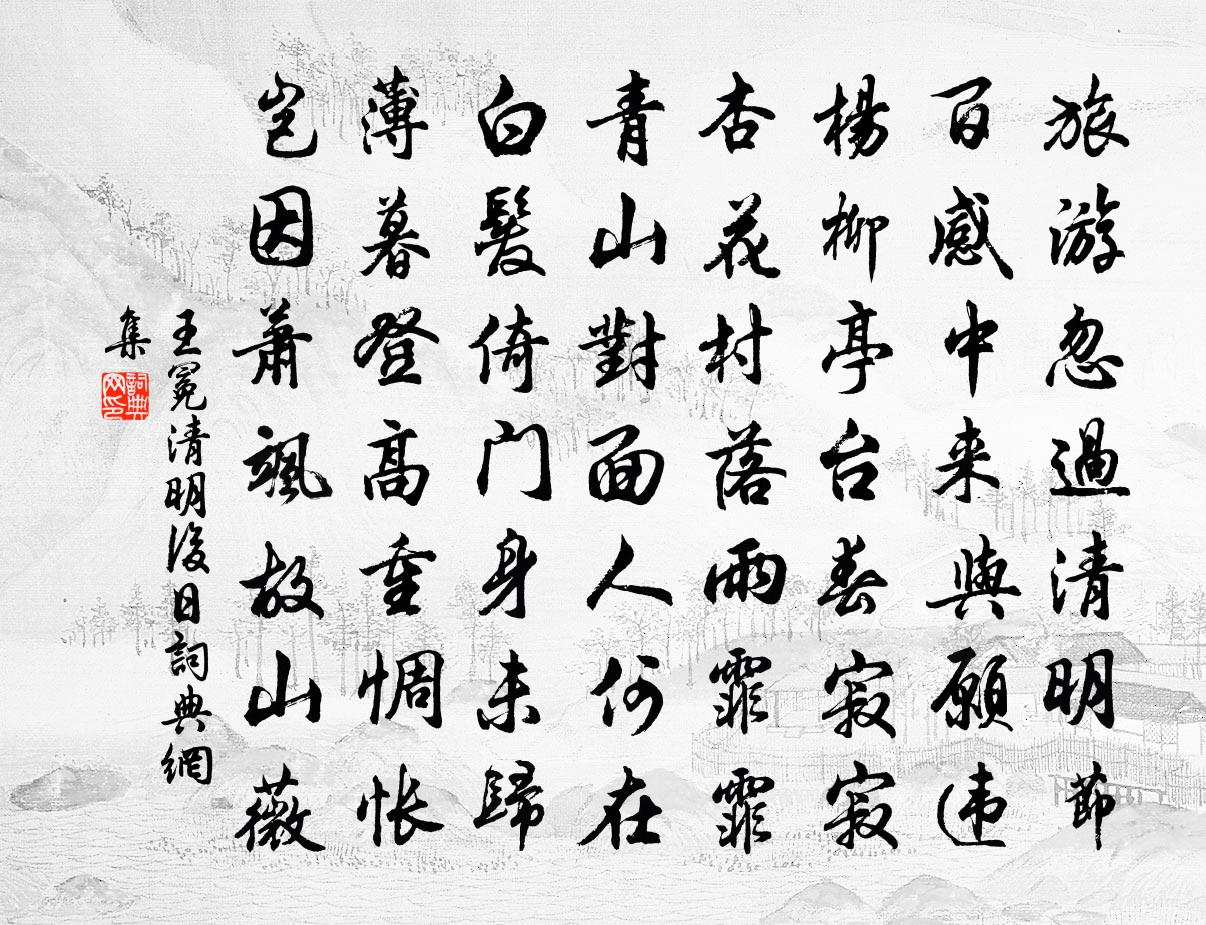 旅游忽過清明節
百感中来與願违
楊柳亭台春寂寂
杏花村落雨霏霏
青山對面人何在
白髮倚门身未歸
薄暮登高重惆怅
岂因萧飒故山薇
王冕清明後日詞典網
集
詞典
网印